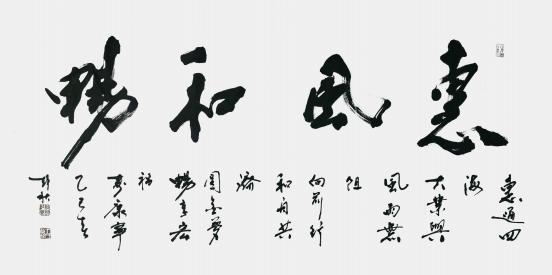 惠風和暢
惠通四
海
大業興
風雨無
阻
向前行
和舟共
濟
圓金夢
暢享宏
福
壽康寧
乙巳春